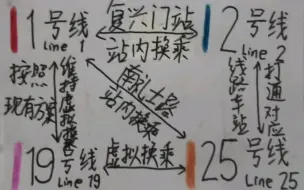 1号线
Line 1
复兴门站
站内换乘
2号线
Line 2
按照
现有方案
维持虚拟换乘
南礼士路
站内换乘
打通对应
线路车站
19号线
Line 19
虚拟换乘
25号线
Line 25